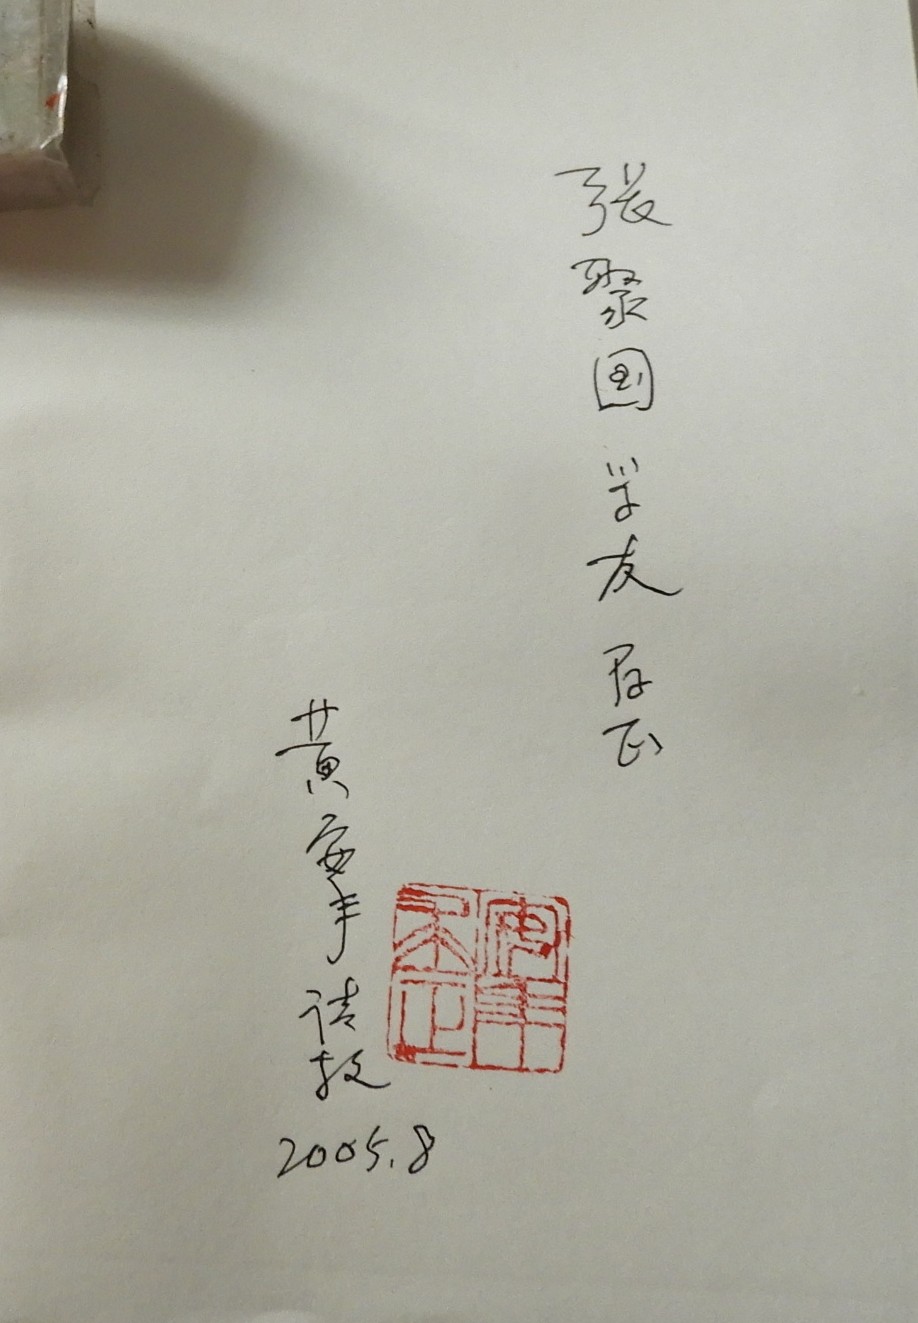 张聚国学友 存正
黄安年 请教
2005.8